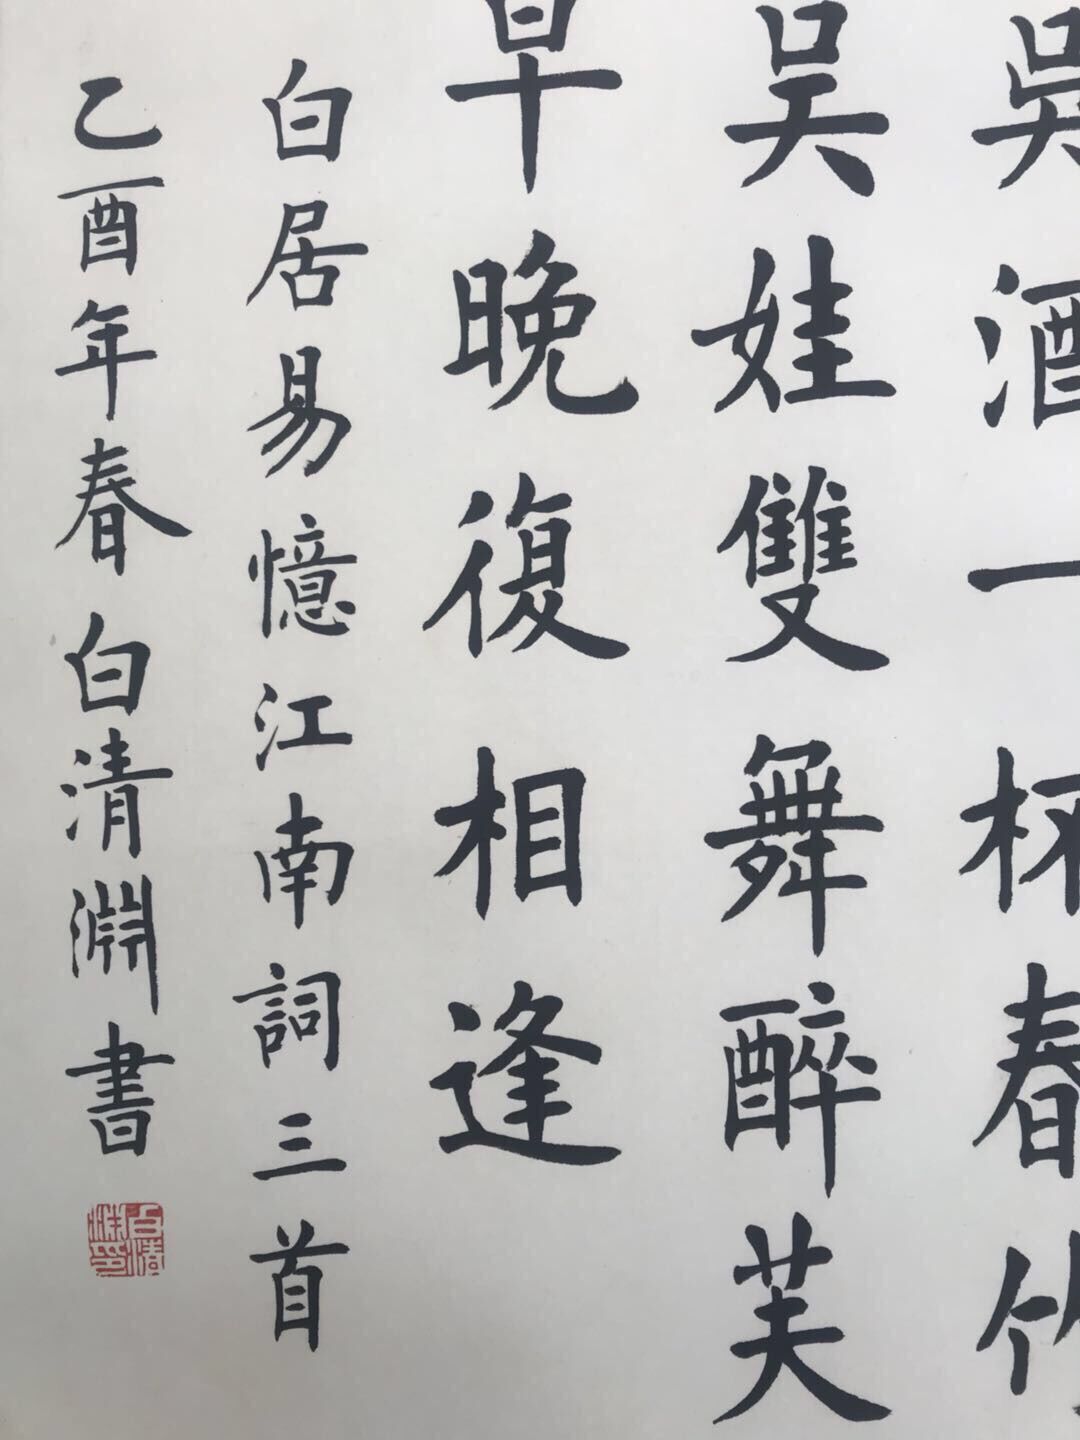 吴酒一杯春竹
吴娃雙舞醉芙
早晚復相逢
白居易憶江南詞三首
乙酉年春白清淵書
白清淵印